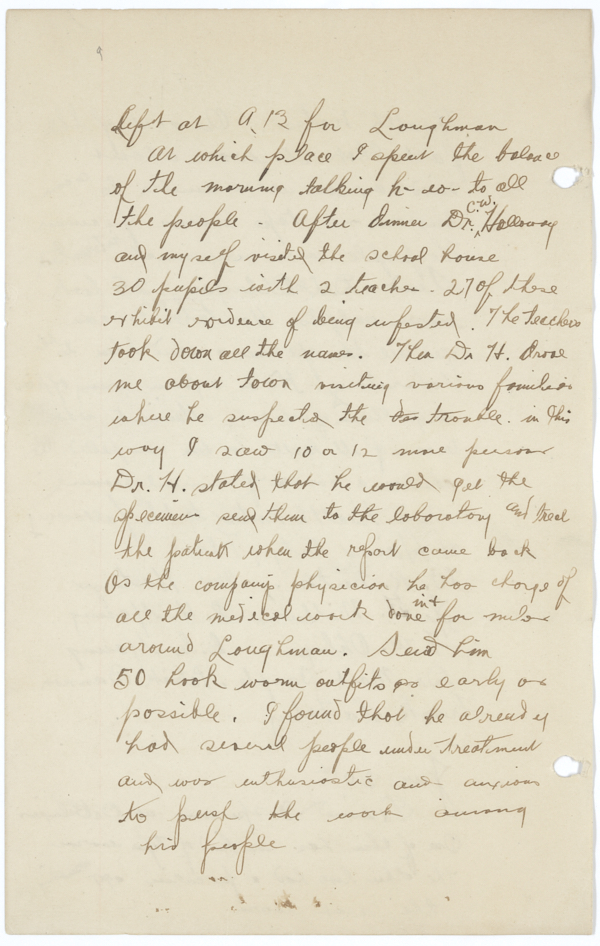 9
Left at 9.13 for Loughman
At which place I spent the balance
of the morning talking h- w- to all
the people - After dinner Dr. C.W. Holloway
and myself visited the school house
30 pupils with 2 teacher. 27 of these
exhibit evidence of being infested. The teachers
took down all the names. Then Dr H. Drove
me about town visiting various families
where he suspected the trouble. in this
way I saw 10 or 12 more persons
Dr. H. stated that he would get the
specimens send them to the laboratory and treat
the patients when the report came back
As the company's physician he has charge of
all the medical work done for miles
around Loughman. Send him
50 hook worm outfits as early as
possible. I found that he already
had several people under treatment
and was enthusiastic and anxious
to push the work among
his people